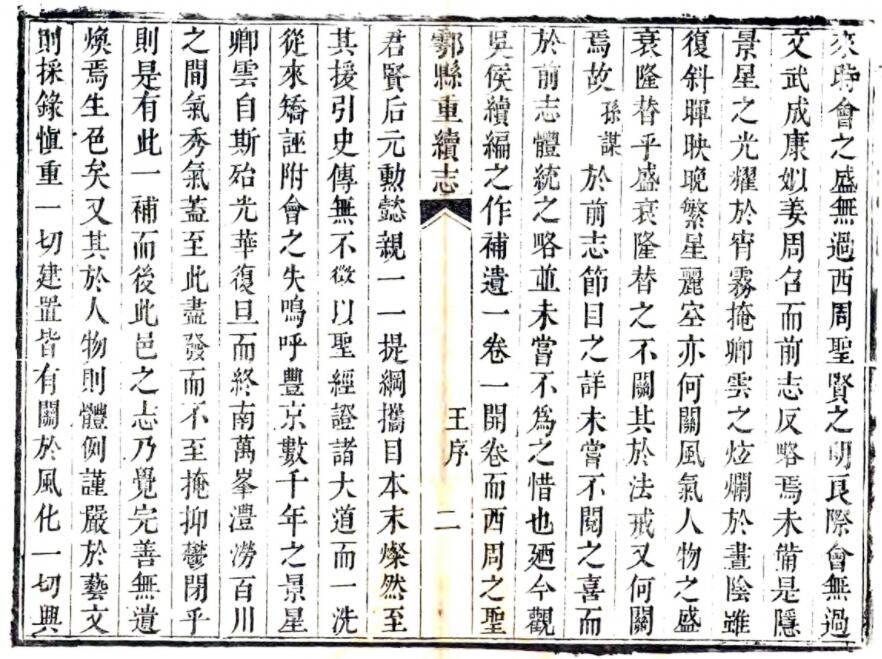 來時會之盛無過西周聖賢之明良際會無過
文武成康姒姜周召而前志反略焉未備是隱
景星之光耀於宵霧掩卿雲之炫爛於晝陰雖
復斜暉映晚繁星麗空亦何關風氣人物之盛
衰隆替乎盛衰隆替之不關其於法戒又何關
焉故孫謀於前志節目之詳未嘗不閱之喜而
於前志體統之略並未嘗不爲之惜也廼今觀
吳侯續編之作補遺一卷一開卷而西周之聖
鄠縣重續志 王序 二
君賢后元勳懿親一一提綱攜目本末燦然至
其援引史傳無不徵以聖經證諸大道而一洗
從來矯誣附會之失嗚呼豐京數千年之景星
卿雲自斯始光華復旦而終南萬峯澧澇百川
之間氣秀氣蓋至此盡發而不至掩抑鬱閉乎
則是有此一補而後此邑之志乃覺完善無遺
煥焉生色矣又其於人物則體例謹嚴於藝文
則採錄愼重一切建置皆有關於風化一切興